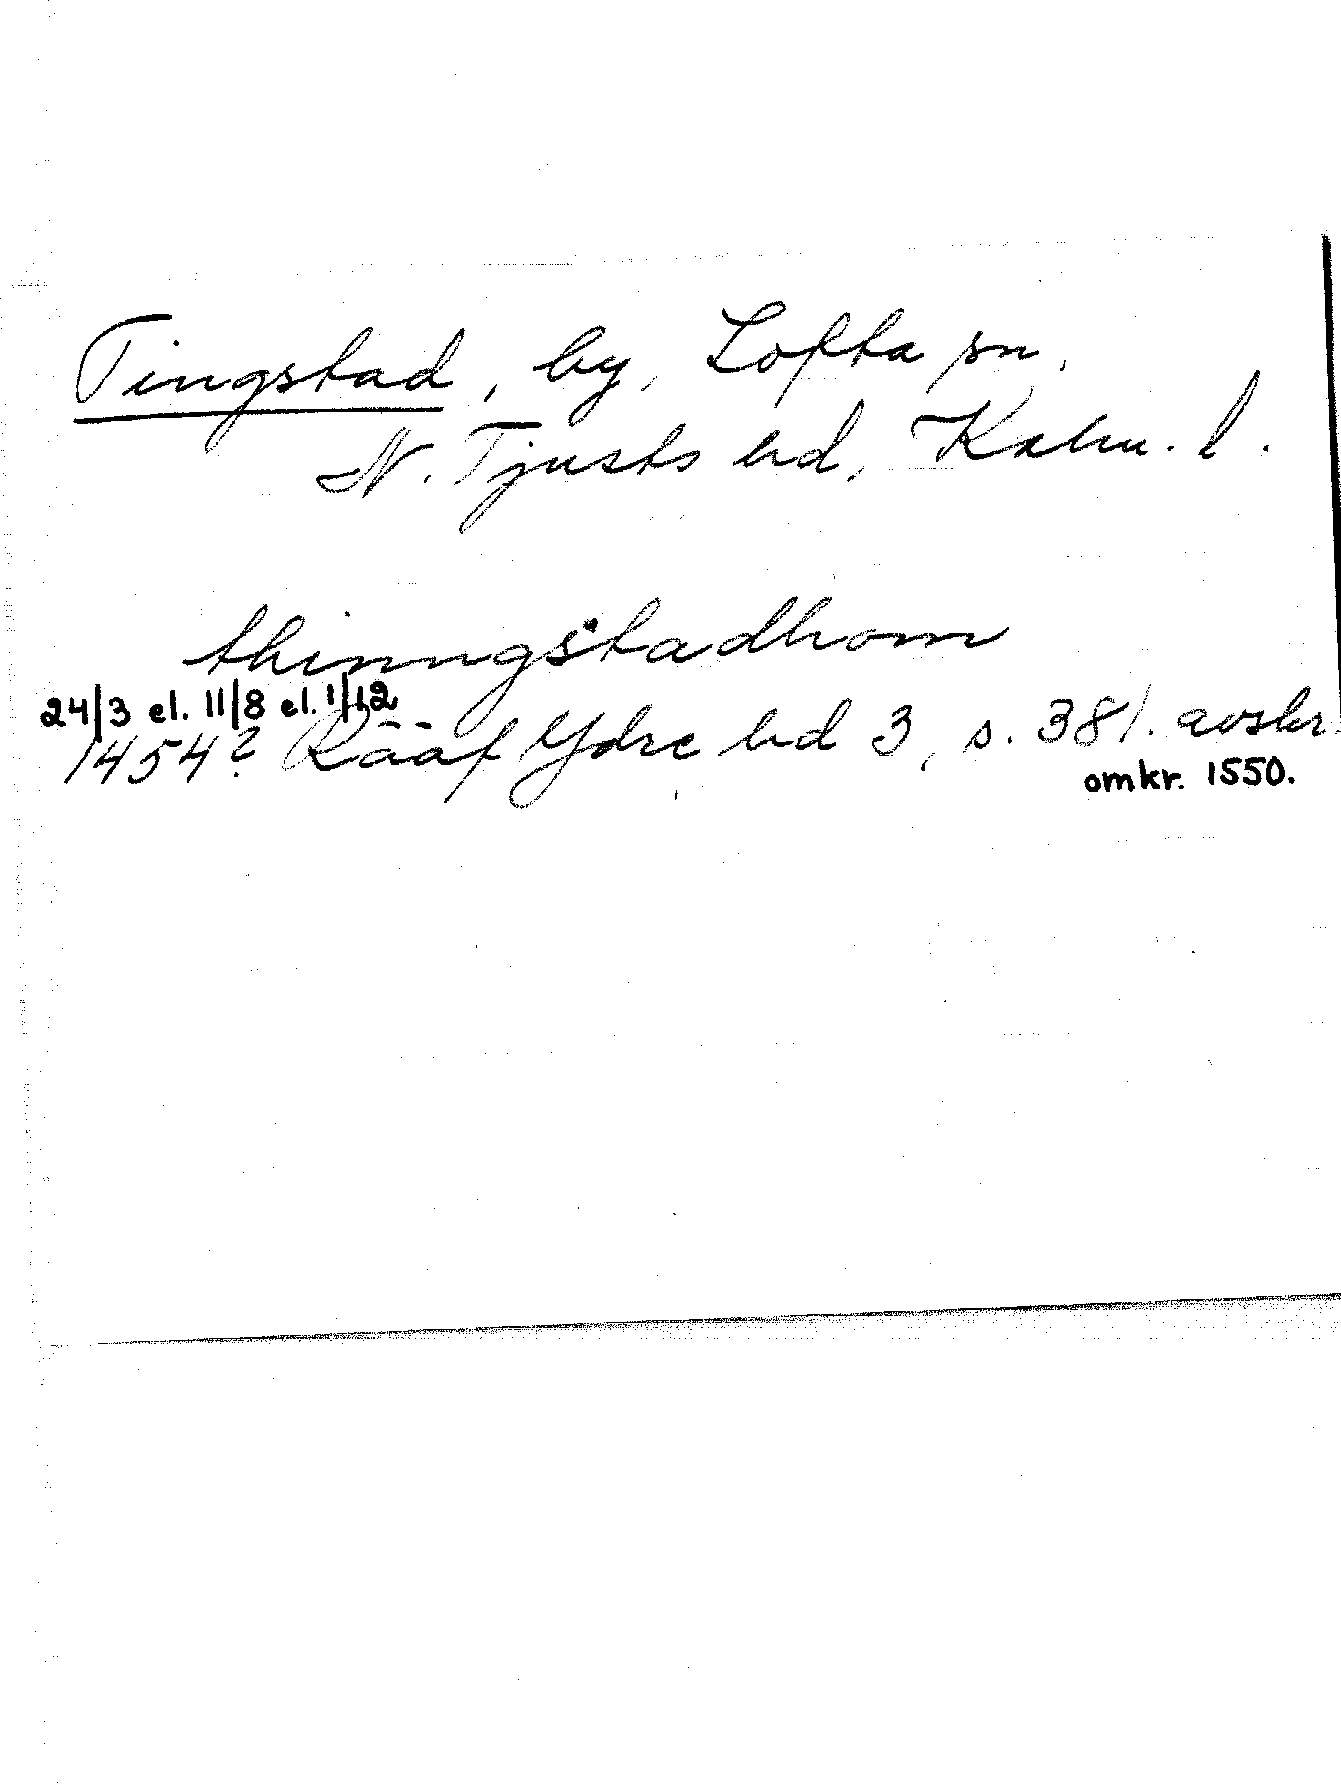 Tingstad, by, Lofta sn,
N. Tjusts hd, Kalm. l.
thinngstadhom
24/3 el. 11/8 el. 1/12
1454? Rääf Ydre hd 3, s. 381. avskr.
omkr. 1550.